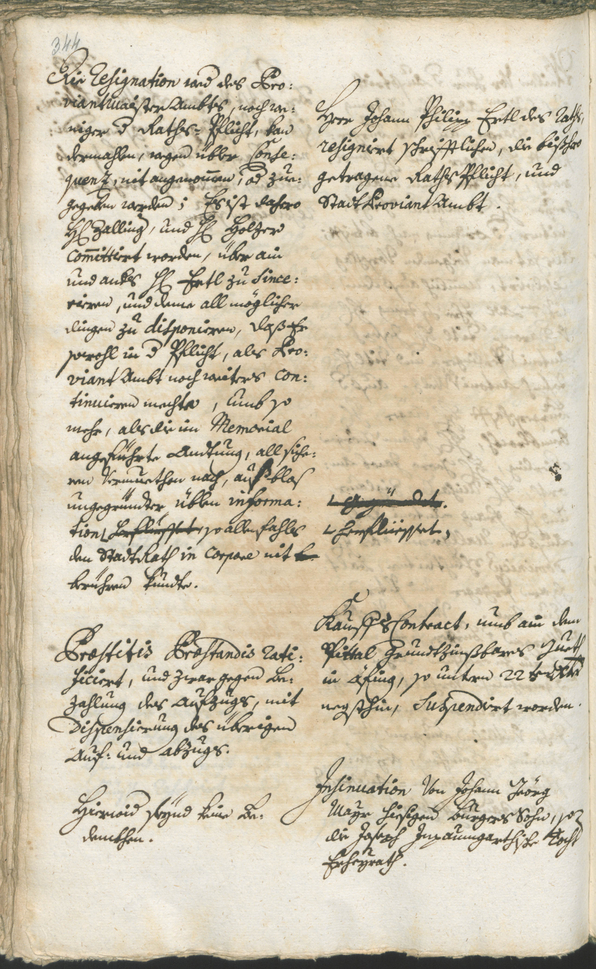 344
Die Resignation und des Pro:
viantmaister Ambts, noch we:
niger d Raths-Pflicht, kan
dermahlen, wegen übler Conse:
quenz, nit angenommen, od zue:
gegeben werden; Es ist dahero
H Zalling, und H Holzer
Committirt worden, über ain
und anders H Ertl zu Since:
riren, und deme all möglicher
dingen zu disponieren, daß er
sowohl in d Pflicht, als Pro:
viant Ambt noch weiters con:
tinuieren mechte, umb so
mehr, als die im Memorial
angeführte Andtung, all siche:
ren Vermuethen nach, auß blos
ungegründter üblen informa:
tion so allenfahls
den Stadt Rath in Corpore nit
berühren kundte.
Herr Johann Philipp Ertl des Raths,
resigniert schrifftlichen, die bißhero
getragene Raths Pflicht, und
Stadt Proviant Ambt.
herfliesset,
Præstitis Præstandis rati:
ficiert, und zwar gegen Be:
zahlung des Aufzugs, mit
Dispensierung des übrigen
Auf- und Abzugs.
Kauffs Contract, umb ain dem
Spittal Grundtzinßbares Guett
in Äfing, so untern 22
negsthin, Suspendirt worden.
Hierwid seynd keine Be:
denkhen.
Insinuation Von Johann Geörg
Mayr hiesigen Burgers Sohn, so
die Joseph Tocht
Erheyrath.